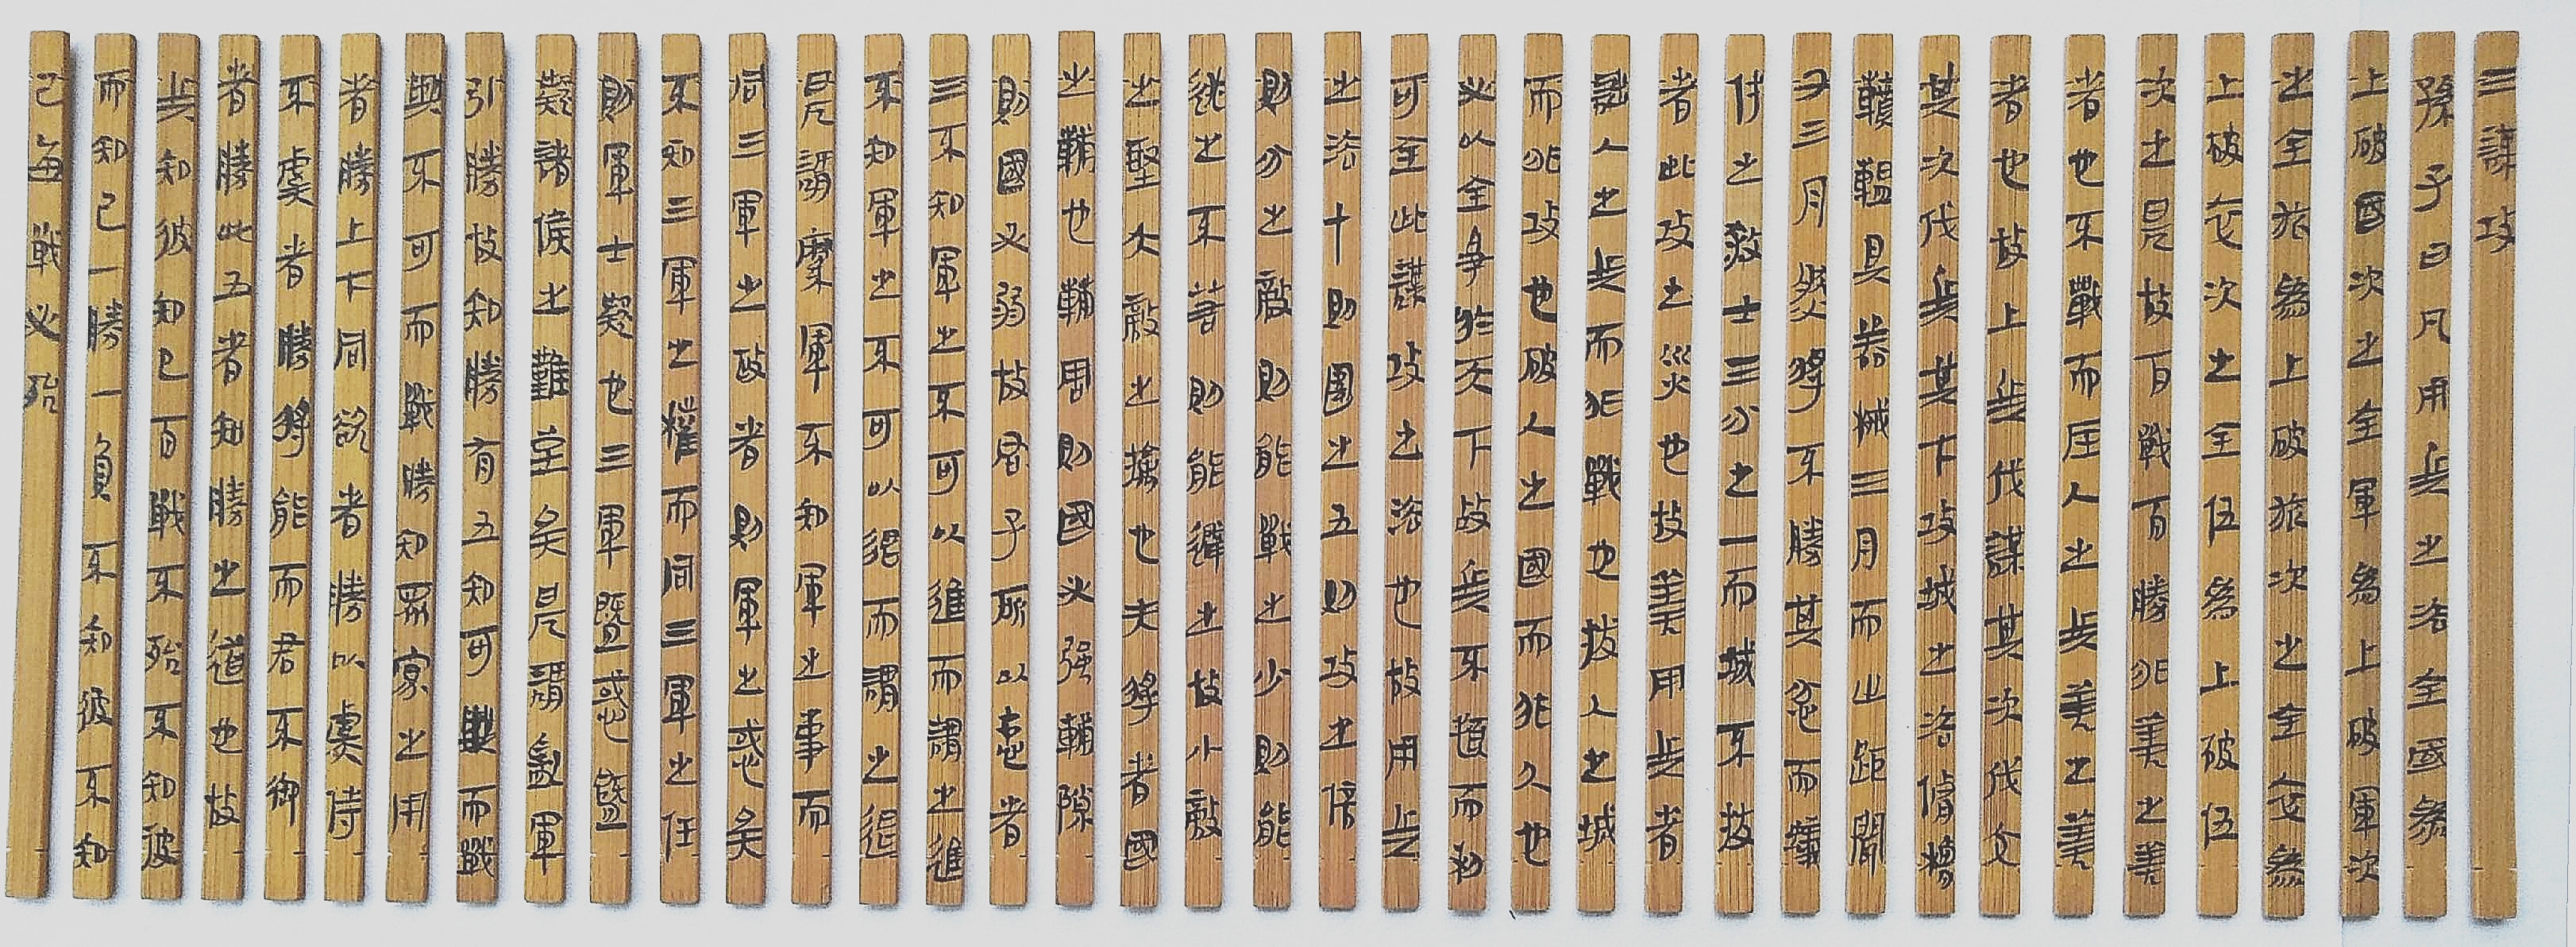 三謀攻
孫子曰凡用兵之法全國為
上破國次之全軍為上破軍次
之全旅為上破旅次之全卒為
上破卒次之全伍為上破伍
次之是故百戰百勝非善之善
者也不戰而屈人之兵善之善
者也故上兵伐謀其次伐交
其次伐兵其下攻城之法脩櫓
轒轀具器械三月而止距闉
又三月然將不勝其忿而蟻
附之殺士三分之一而城不拔
者此攻之災也故善用兵者
詘人之兵而非戰也拔人之城
而非攻也破人之國而非久也
必以全爭於天下故兵不頓而利
可全此謀攻之法也故用兵
之法十則圍之五則攻之倍
則分之敵則能戰之少則能
逃之不若則能避之故小敵
之堅大敵之擒也夫將者國
之輔也輔周則國必强輔隙
則國必弱故君子所以患者
三不知軍之不可以進而謂之進
不知軍之不可以退而謂之退
是謂縻軍不知軍之事而
同三軍之政者則軍之惑矣
不知三軍之權而同三軍之任
則軍士疑也三軍既惑既
疑諸侯之難至矣是謂亂軍
引勝故知勝有五知可與而戰
與不可而戰勝知眾寡之用
者勝上下同欲者勝以虞待
不虞者勝將能而君不御
者勝此五者知勝之道也故
兵知彼知己百戰不殆不知彼
而知己一勝一負不知彼不知
己每戰必殆